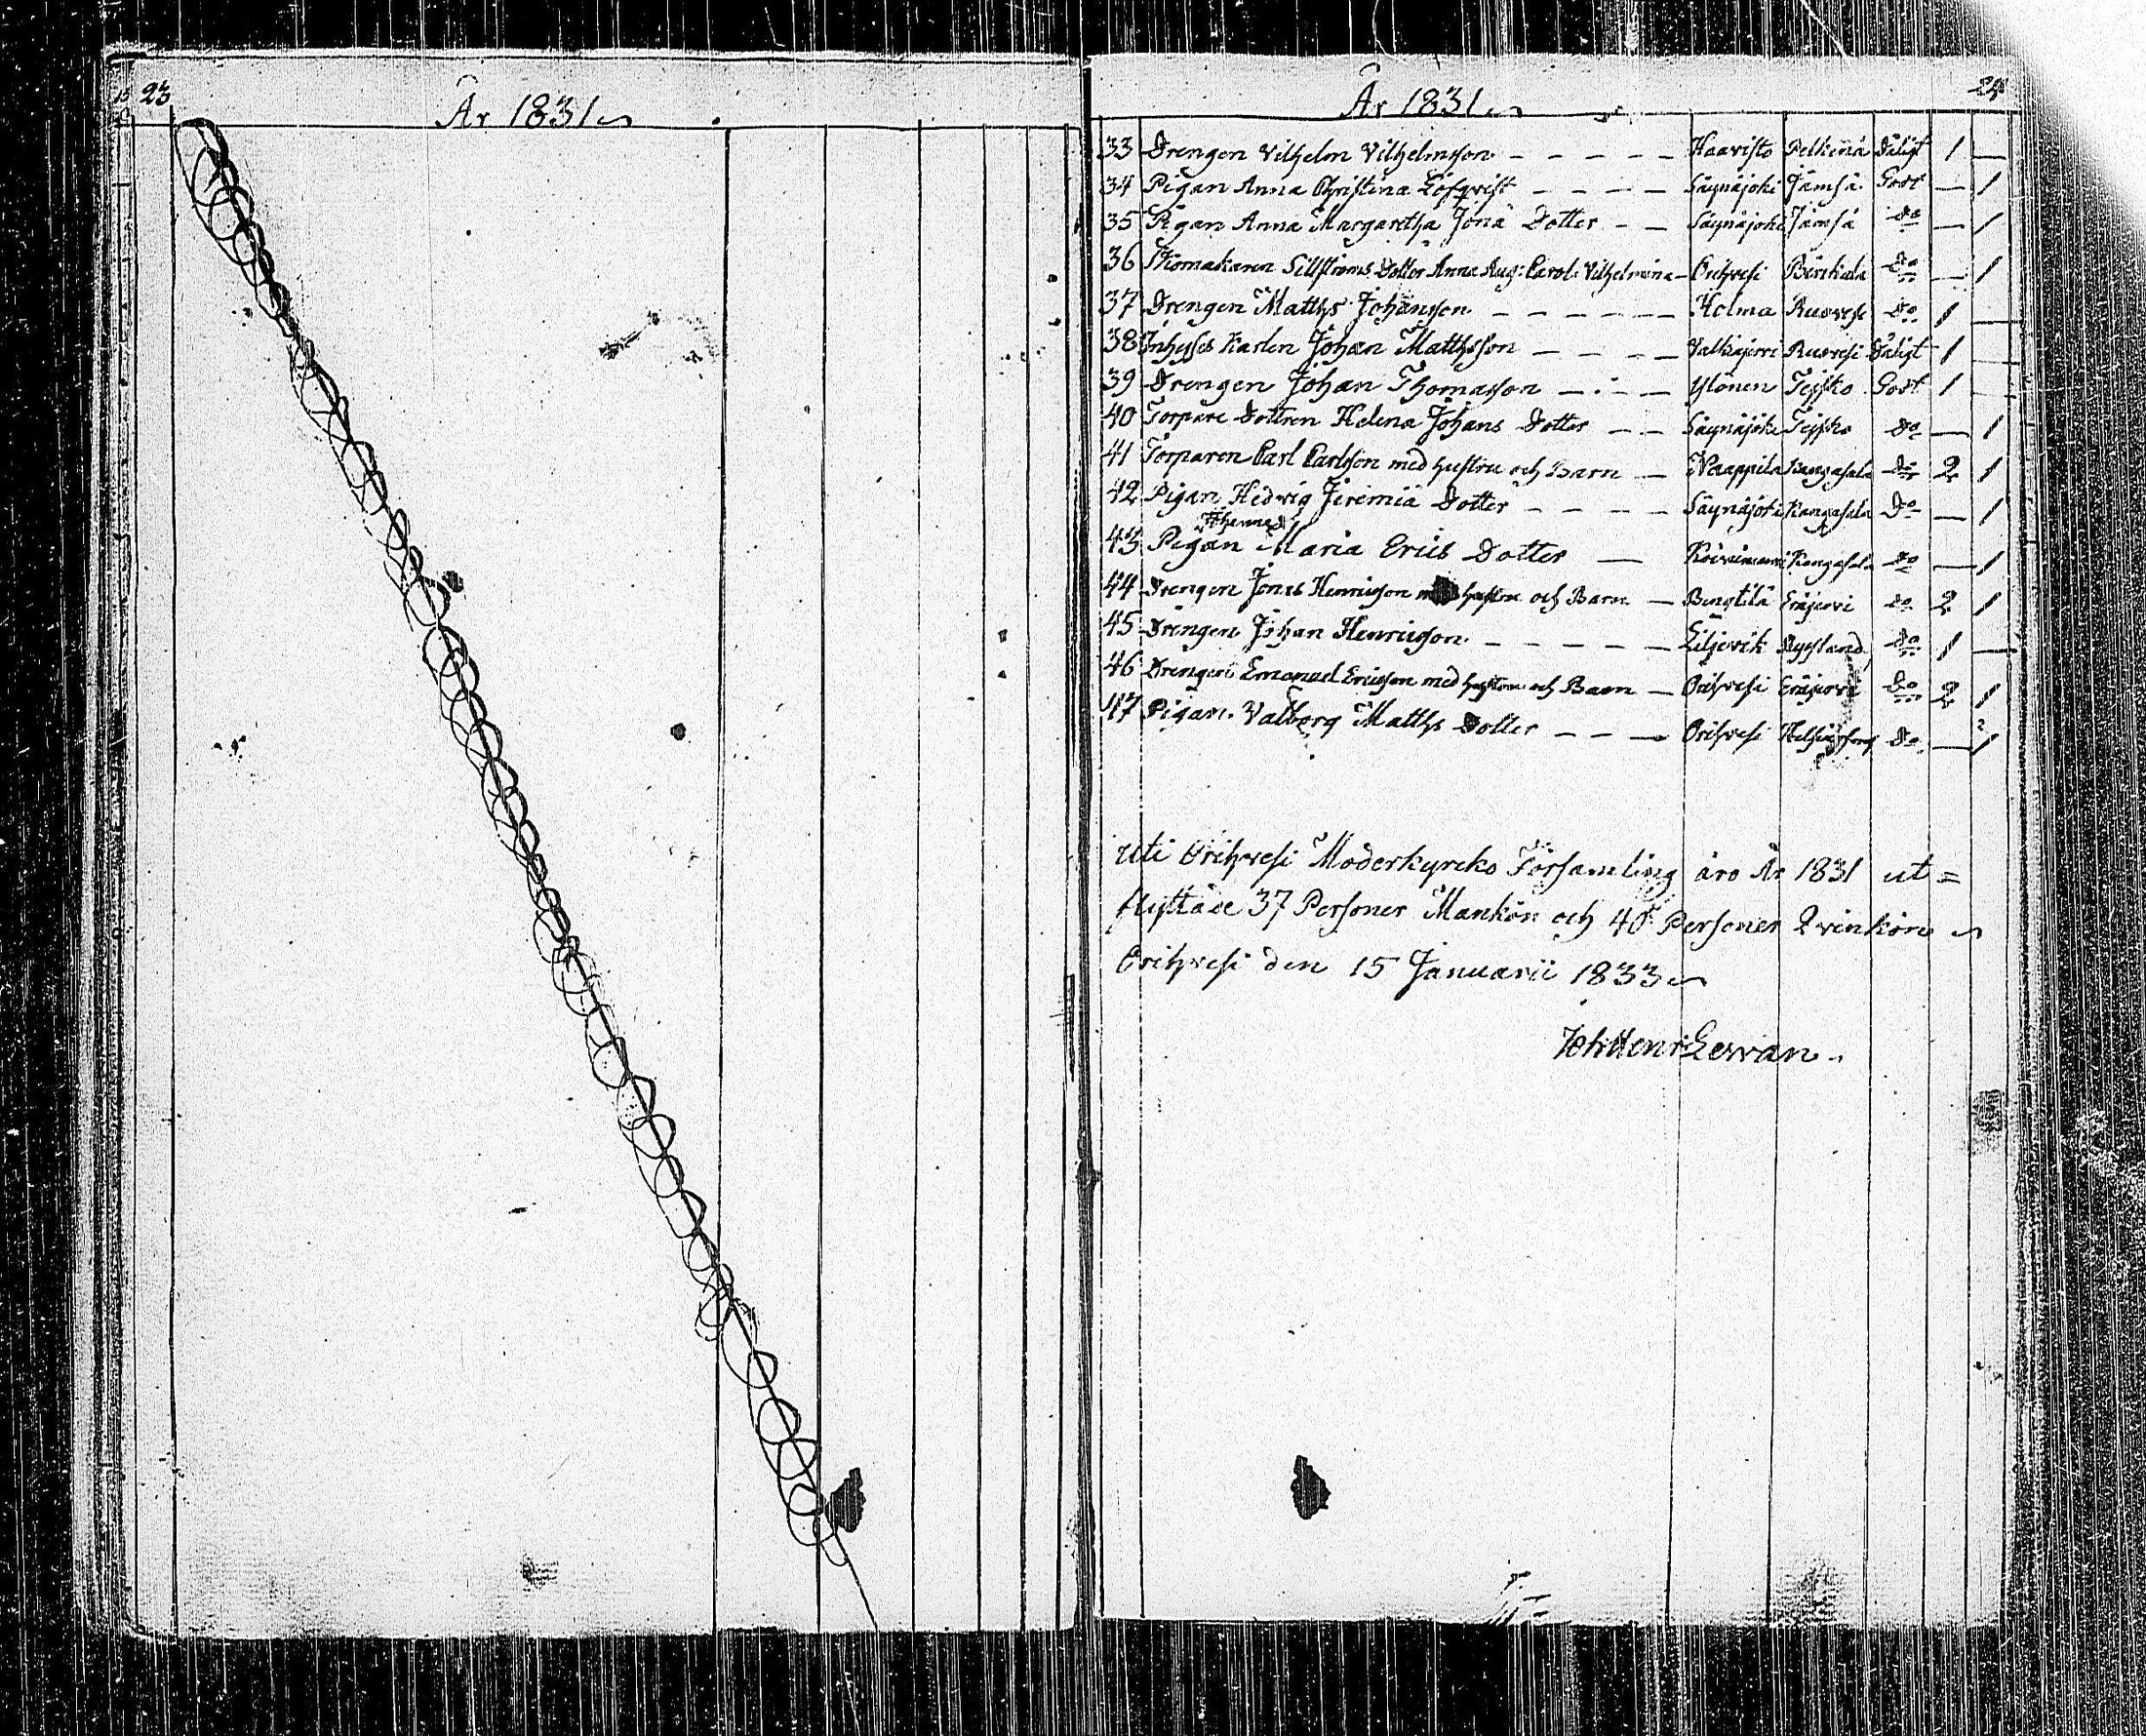 23
År 1831
År 1831
24
33 Drengen Vilhelm Vilhelmsson Haavisto Pelkena Dåligt 1 —
34 Pigan Anna Christina Löfqvist Säynäjoki Jämsä Godt — 1
35 Pigan Anna Margaretha Jona Dotter Säynäjoki Jämsä Do — 1
36 Skomakaren Sillströms Dotter Anna Aug: Carol: Vilhelmina Orihvesi Birckala Do — 1
37 Drengen Matths Johansson Holma Ruovesi Do 1 —
38 Inhyses Karlen Johan Matthsson Valkiajervi Ruovesi Dåligt 1 —
39 Drengen Johan Thomasson Ylönen Teisko Godt 1 —
40 Torpare Dottren Helena Johans Dotter Säynäjoki Teisko Do — 1
41 Torparen Carl Carlsson med hustru och Barn Naappila Kangasala Do 2 1
42 Pigan Hedvig Jeremiä Dotter Säynäjoki Kangasala Do — 1
Johanna
43 Pigan Maria Erics Dotter Koivuniemi Kangasala Do — 1
44 Drengen Jonas Henricsson med hustru och Barn Bengtilä Eräjervi Do 2 1
45 Drengen Johan Henricsson Liljevik Ryssland Do 1 —
46 Drengen Emanuel Ericsson med hustru och Barn Orihvesi Eräjervi Do 2 1
47 Pigan Valborg Matths Dotter Orihvesi Helsingfors Do — 1
Uti Orihvesi Moderkyrcko Församling äro År 1831 ut=
flyttade 37 Personer Mankön och 40 Personer Qvinkön
Orihvesi den 15 Januarii 1833
Joh Henr Levan.